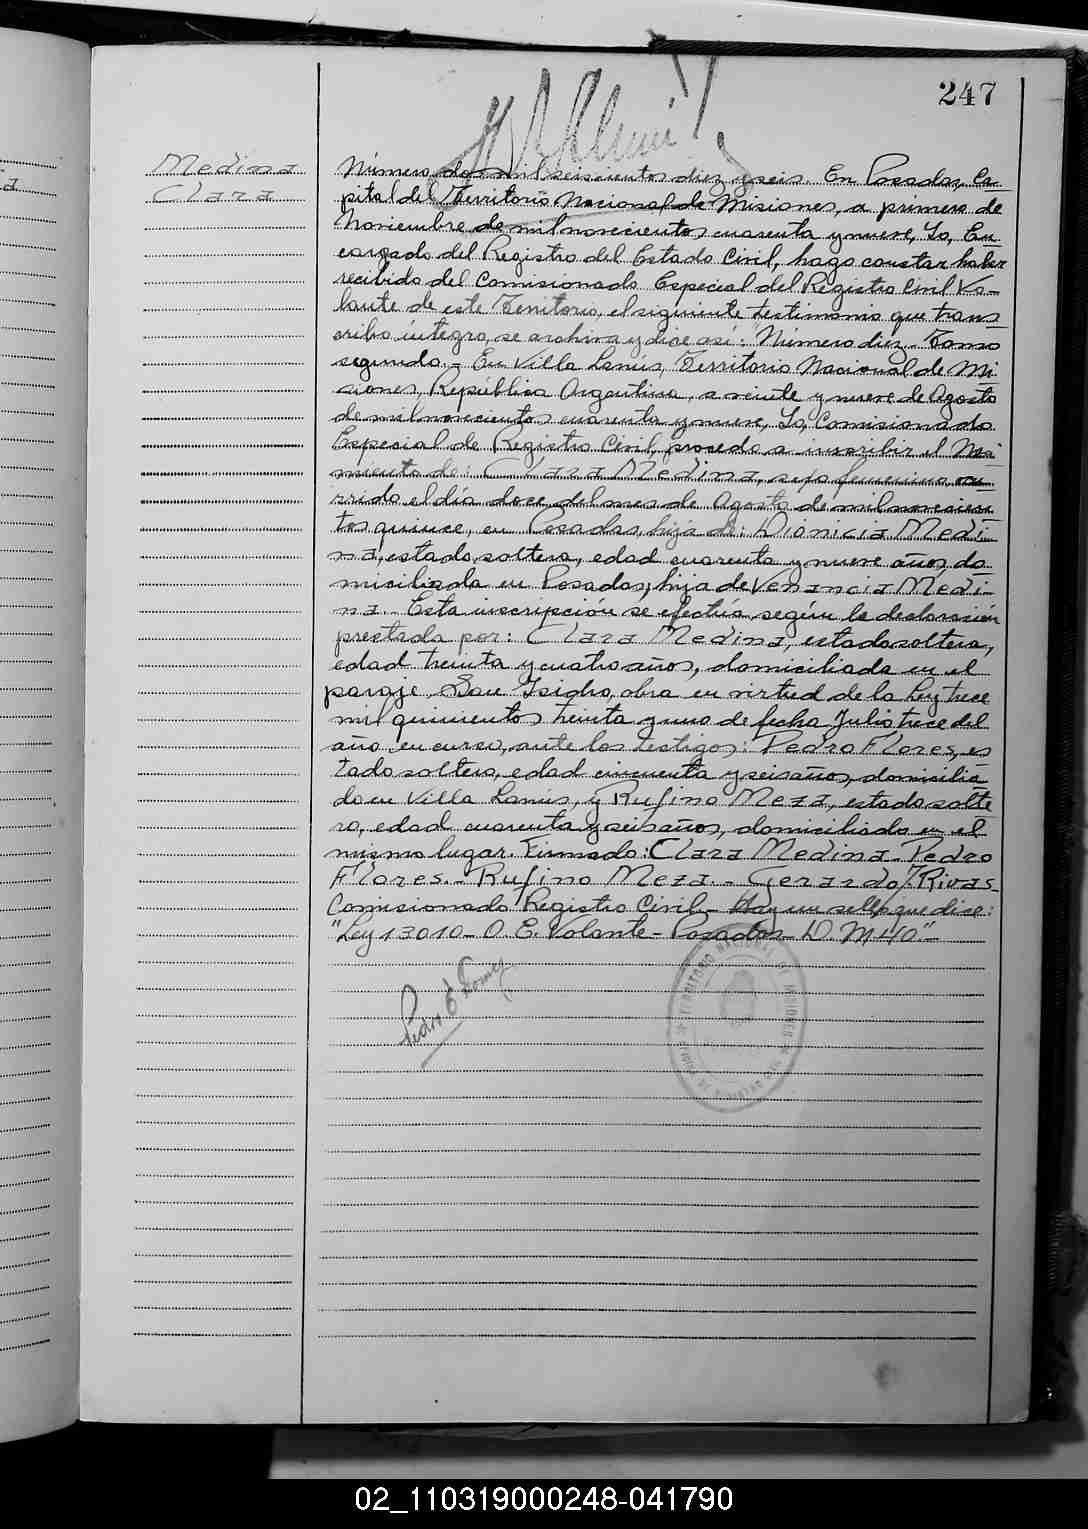 247
Medina
Clara
Número dos mil seiscientos diez y seis. En Posadas, Ca-
pital del Territorio Nacional de Misiones, a primero de
Noviembre de mil novecientos cuarenta y nueve, Yo, En-
cargado del Registro del Estado Civil, hago constar haber
recibido del Comisionado Especial del Registro Civil Vo-
lante de este Territorio, el siguiente testimonio que trans-
cribo íntegro, se archiva y dice así: Número diez.- Tomo
segundo.- En Villa Lanús, Territorio Nacional de Mi-
siones, República Argentina, a veinte y nueve de Agosto
de mil novecientos cuarenta y nueve, Yo, Comisionado
Especial de Registro Civil, procedo a inscribir el Na-
cimiento de: Clara Medina, sexo femenino, ocu-
rrido el día doce del mes de Agosto de mil novecien-
tos quince, en Posadas, hija de: Dionicia Medi-
na, estado soltera, edad cuarenta y nueve años, do-
miciliada en Posadas, hija de Venancia Medi-
na.- Esta inscripción se efectúa según la declaración
prestada por: Clara Medina, estado soltera,
edad treinta y cuatro años, domiciliada en el
paraje San Isidro, obra en virtud de la Ley trece
mil quinientos treinta y uno de fecha Julio trece del
año en curso, ante los testigos: Pedro Flores, es-
tado soltero, edad cincuenta y seis años, domicilia-
do en Villa Lanús, y Rufino Meza, estado solte-
ro, edad cuarenta y seis años, domiciliado en el
mismo lugar. Firmado: Clara Medina.- Pedro
Flores.- Rufino Meza.- Gerardo J. Rivas-
Comisionado Registro Civil.- Hay un sello que dice:
"Ley 13010- O. E. Volante- Posadas- D. M 40".-
Pedro E Gomez
TERRITORIO NACIONAL DE MISIONES
02_110319000248-041790